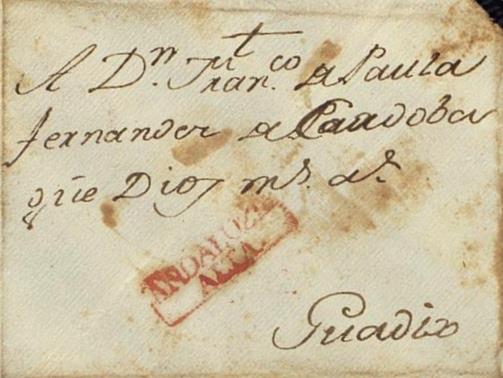 A Dn. Franco. de Paula
Fernandez de Cordoba
que Dios ms. as.
ANDALUZIA
ALTA.
Guadix